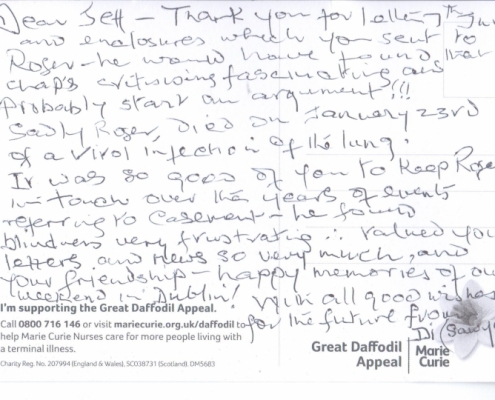 Dear Jeff - Thank you for letter
and enclosures which you sent to
Roger - he would have found that
chap's criticising fascinating and
Probably start an argument!!!
Sadly Roger, died on January 23rd
of a viral infection of the lung.
It was so good of you to keep Roger
in touch over the years of events
referring to Casement - he found
blindness very frustrating ∴ valued you
letters and news so very much, and
your friendship - happy memories of ou
weekend in Dublin! With all good wishes
for the future from
Di (Sawy
I'm supporting the Great Daffodil Appeal.
Call 0800 716 146 or visit mariecurie.org.uk/daffodil to
help Marie Curie Nurses care for more people living with
a terminal illness.
Charity Reg. No. 207994 (England & Wales), SC038731 (Scotland), DM5683
Great Daffodil
Appeal
Marie
Curie